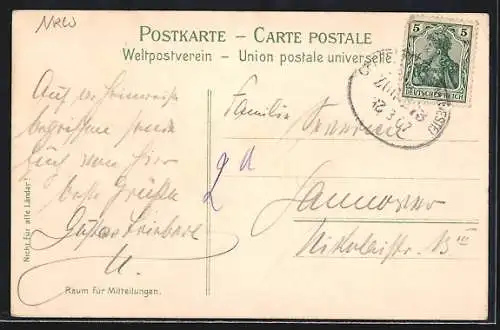 NRW
POSTKARTE – CARTE POSTALE
Weltpostverein – Union postale universelle.
5 5
DEUTSCHES REICH
ZUG
12 3 07
Auf der Heimreise
begriffen sende
Euch von hier
beste Grüße
Gustav
Familie
Hannover
Nikolaistr. 13 III
Nicht für alle Länder!
Raum für Mitteilungen.